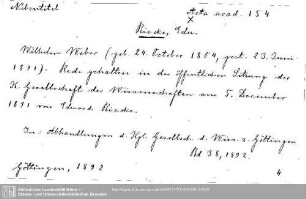 Nebentitel
Acta acad. 154
x
Riecke, Edu.
Wilhelm Weber (geb. 24. October 1804, gest. 23. Juni
1891). Rede gehalten in der öffentlichen Sitzung der
K. Gesellschaft der Wissenschaften am 5. December
1891 von Eduard Riecke.
In: Abhandlungen d. Kgl. Gesellsch. d. Wiss. z. Göttingen
Bd 38, 1892.
Göttingen, 1892
4